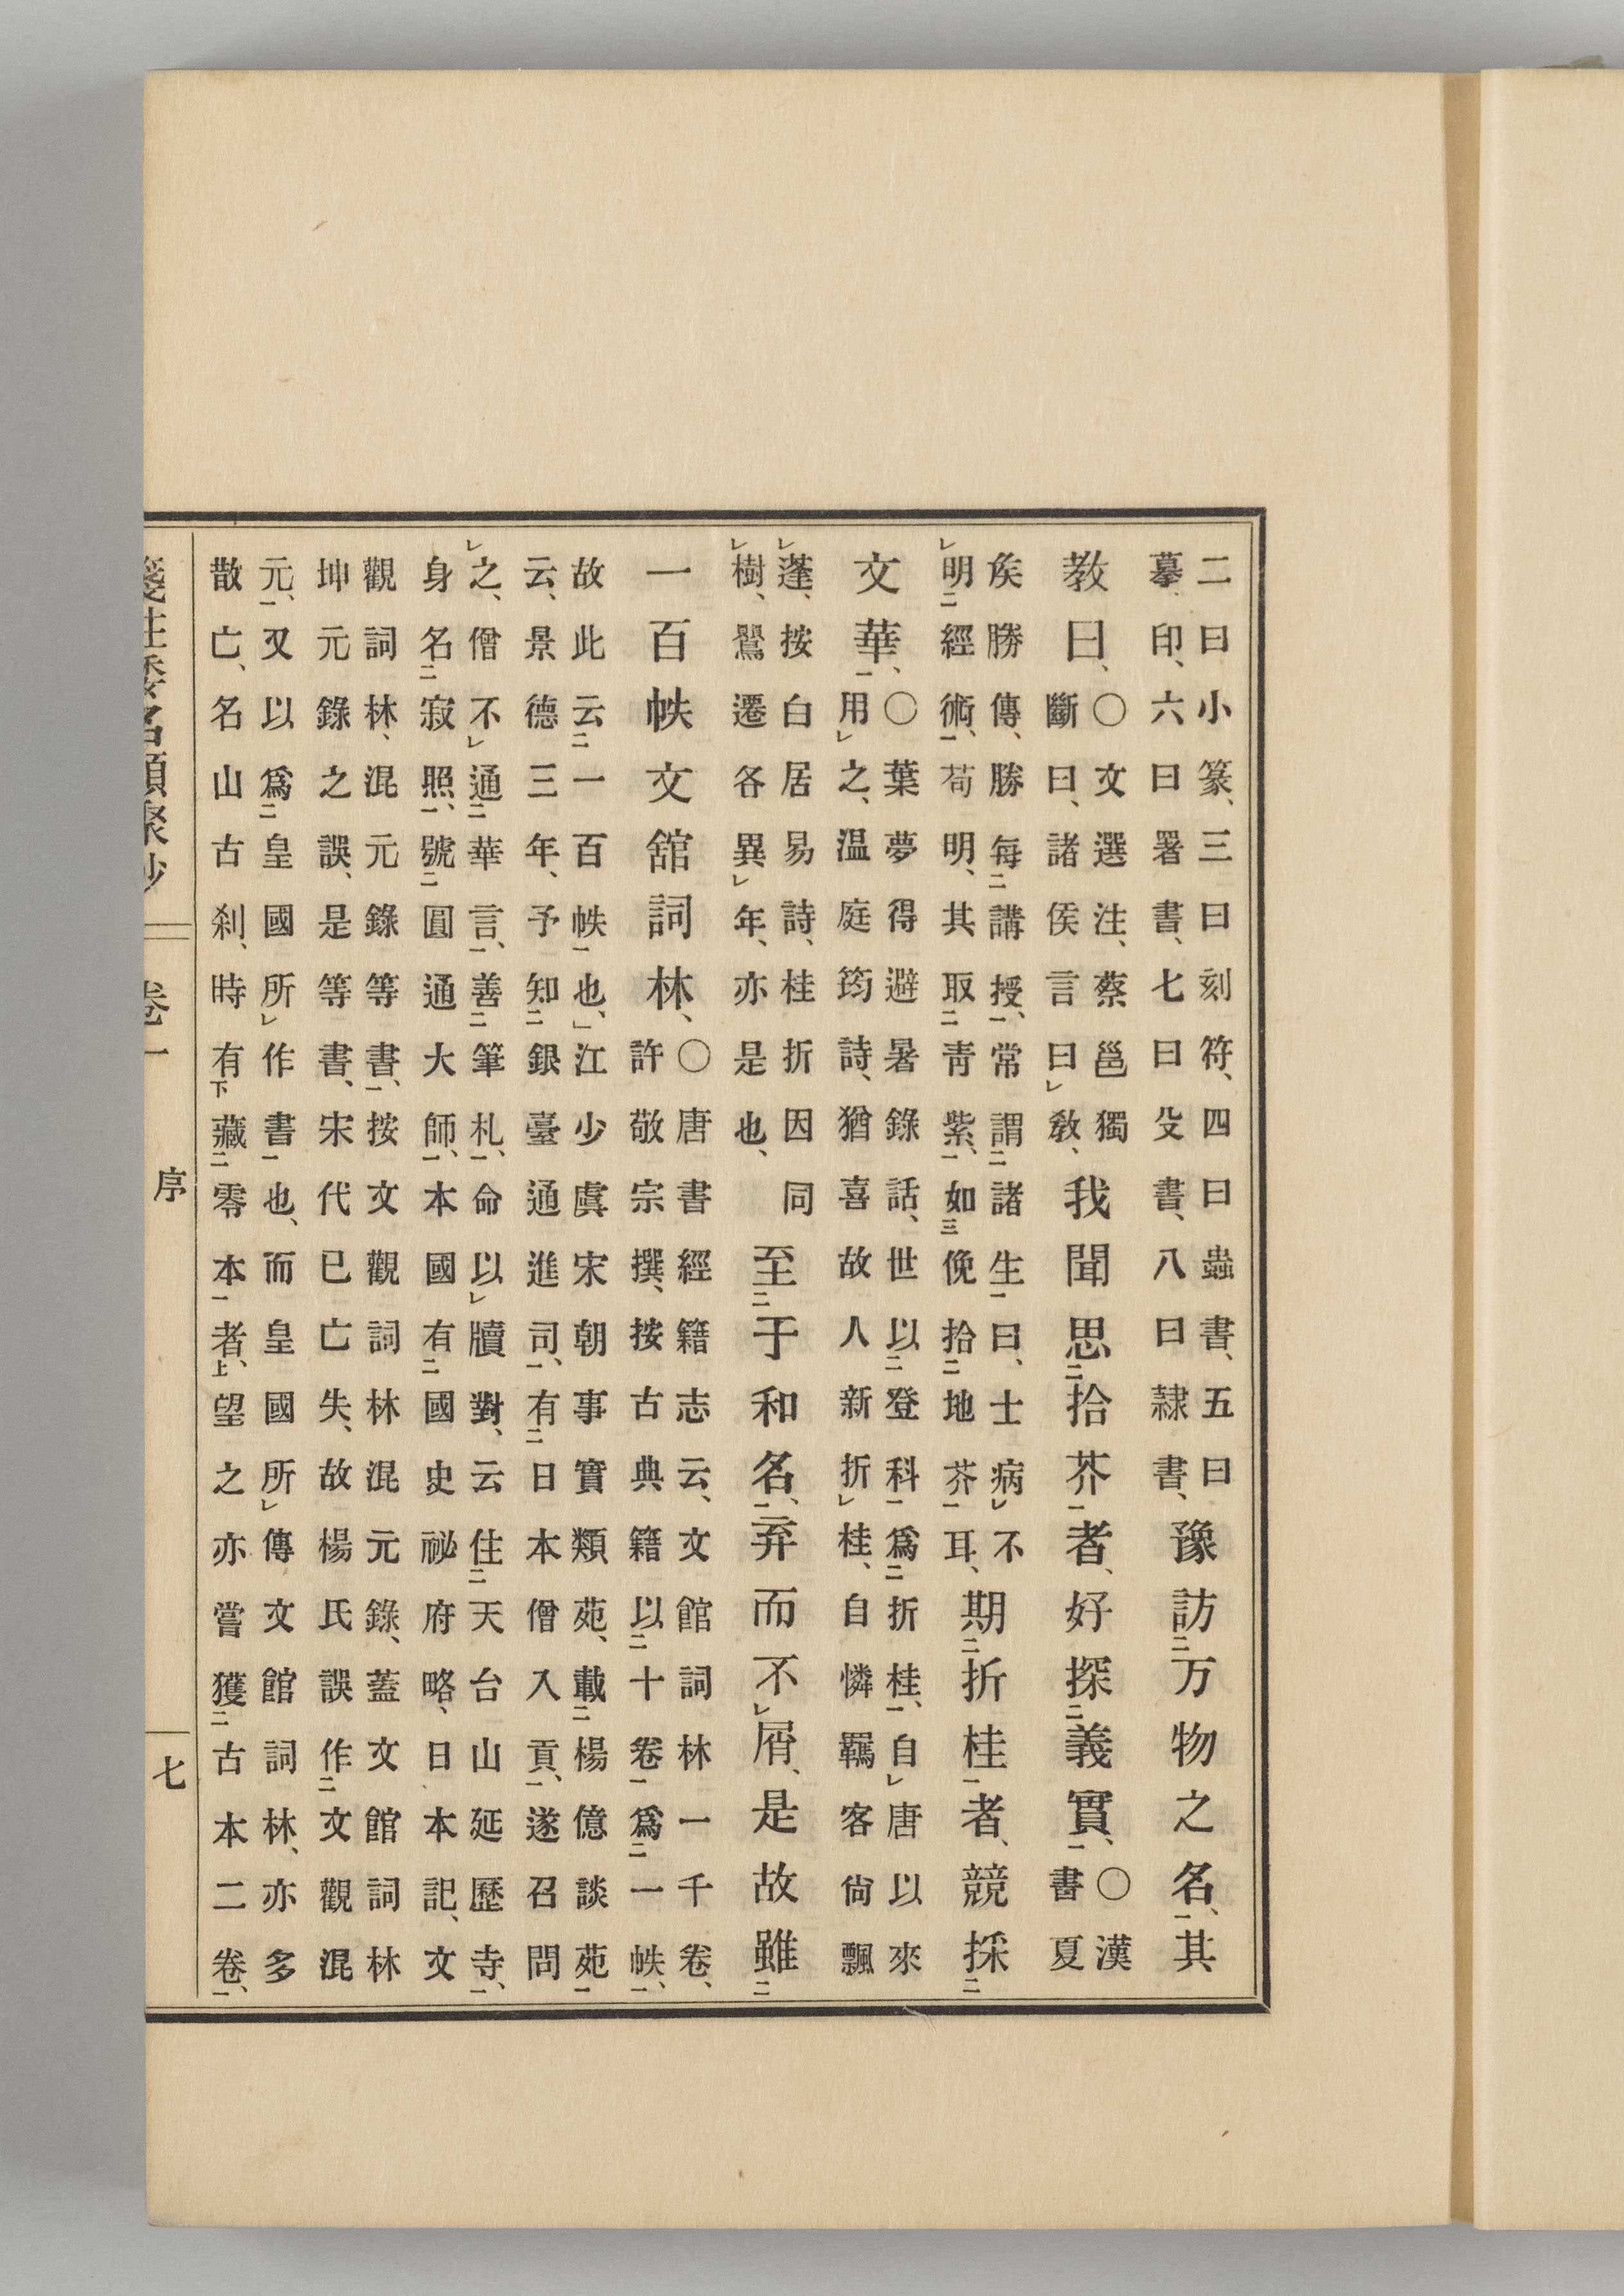 二曰小篆、三曰刻符、四曰蟲書、五曰
摹印、六曰署書、七曰殳書、八曰隸書、
豫訪万物之名、其
教曰、
〇文選注、蔡邕獨
斷曰、諸侯言曰教、
我聞思拾芥者、好探義實、
〇漢
書夏
矦勝傳、勝每講授、常謂諸生曰、士病不
明經術、苟明、其取靑紫、如俛拾地芥耳、
期折桂者、競採
文華、
〇葉夢得避暑錄話、世以登科爲折桂、自唐以來
用之、温庭筠詩、猶喜故人新折桂、自憐羈客尙飄
蓬、按白居易詩、桂折因同
樹、鶯遷各異年、亦是也、
至于和名、弃而不屑、是故雖
一百帙文舘詞林、
〇唐書經籍志云、文館詞林一千卷、
許敬宗撰、按古典籍以十卷爲一帙、
故此云一百帙也、」江少虞宋朝事實類苑、載楊億談苑
云、景德三年、予知銀臺通進司、有日本僧入貢、遂召問
之、僧不通華言、善筆札、命以牘對、云住天台山延歷寺、
身名寂照、號圓通大師、本國有國史祕府略、日本記、文
觀詞林、混元錄等書、按文觀詞林混元錄、蓋文館詞林
坤元錄之誤、是等書、宋代已亡失、故楊氏誤作文觀混
元、又以爲皇國所作書也、而皇國所傳文館詞林、亦多
散亡、名山古刹、時有藏零本者、望之亦嘗獲古本二卷、
箋注倭名類聚抄 卷一 序 七